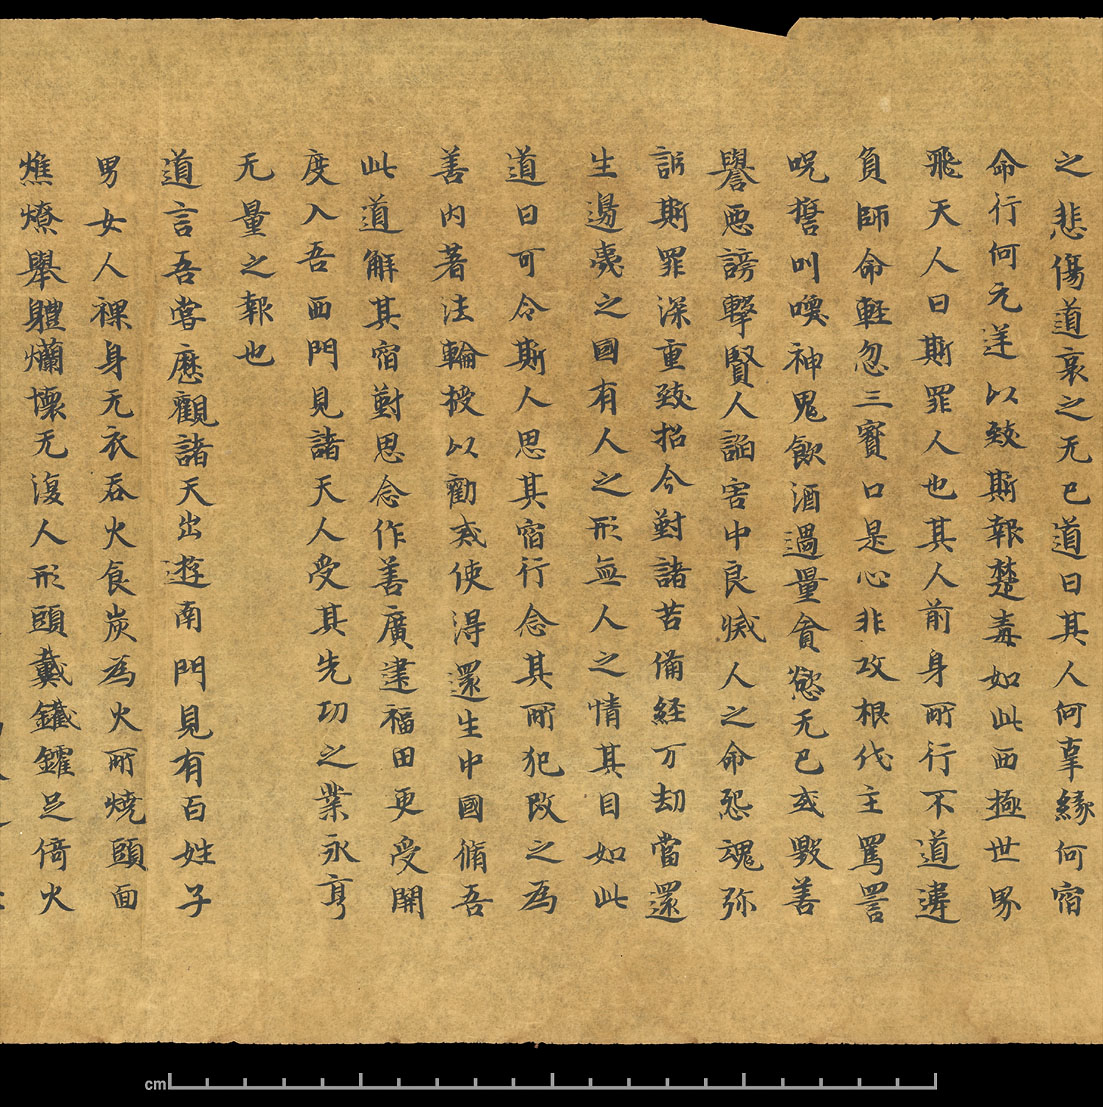 之悲傷道哀之无已道曰其人何辜緣何宿
命行何元逆以致斯報楚毒如此西極世界
飛天人曰斯罪人也其人前身所行不道違
負師命輕忽三寶口是心非攻根伐主罵詈
呪誓叫喚神鬼飲酒過量貪慾无已或毀善
譽惡謗擊賢人謟害中良滅人之命怨魂弥
訴斯罪深重致招今對諸苦備經万劫當還
生邊夷之國有人之形無人之情其目如此
道曰可令斯人思其宿行念其所犯改之為
善內著法輪授以勸戒使得還生中國脩吾
此道解其宿對思念作善廣建福田更受開
度入吾西門見諸天人受其先功之業永享
无量之報也
道言吾嘗歷觀諸天出遊南門見有百姓子
男女人裸身无衣吞火食炭為火所燒頭面
燋燎舉體爛壞无復人形頭戴鐵鑵足倚火
cm